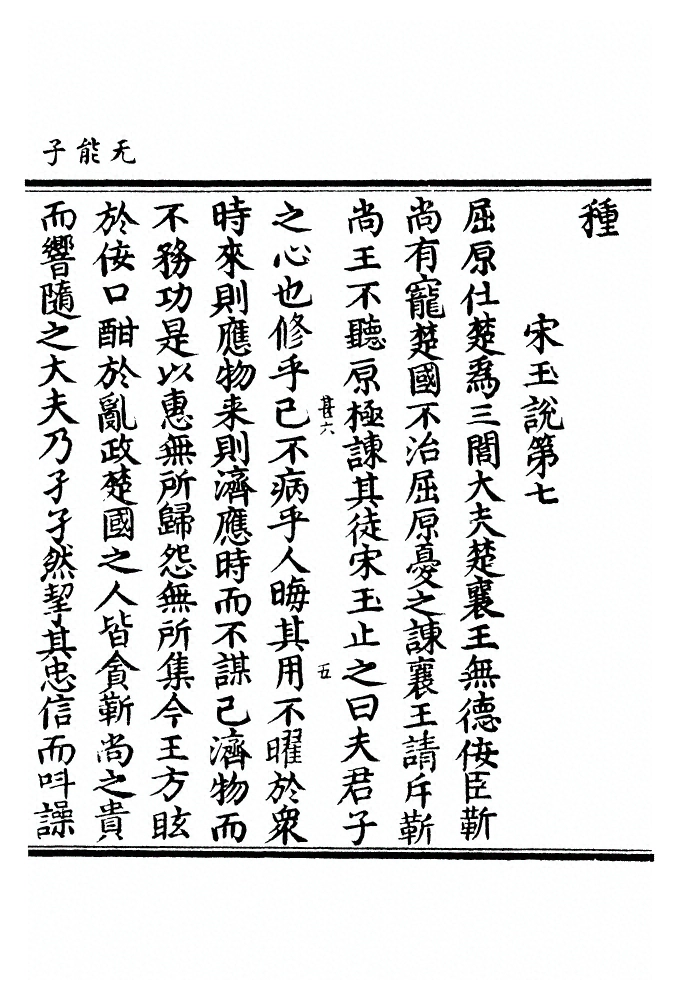 无能子
種
宋玉說第七
屈原仕楚爲三閭大夫楚襄王無德佞臣靳
尚有寵楚國不治屈原憂之諫襄王請斥靳
尚王不聽原極諫其徒宋玉止之曰夫君子
甚六
五
之心也修乎己不病乎人晦其用不曜於衆
時來則應物来則濟應時而不謀己濟物而
不務功是以惠無所歸怨無所集今王方眩
於佞口酣於亂政楚國之人皆貪靳尚之貴
而響隨之大夫乃孑孑然挈其忠信而叫譟